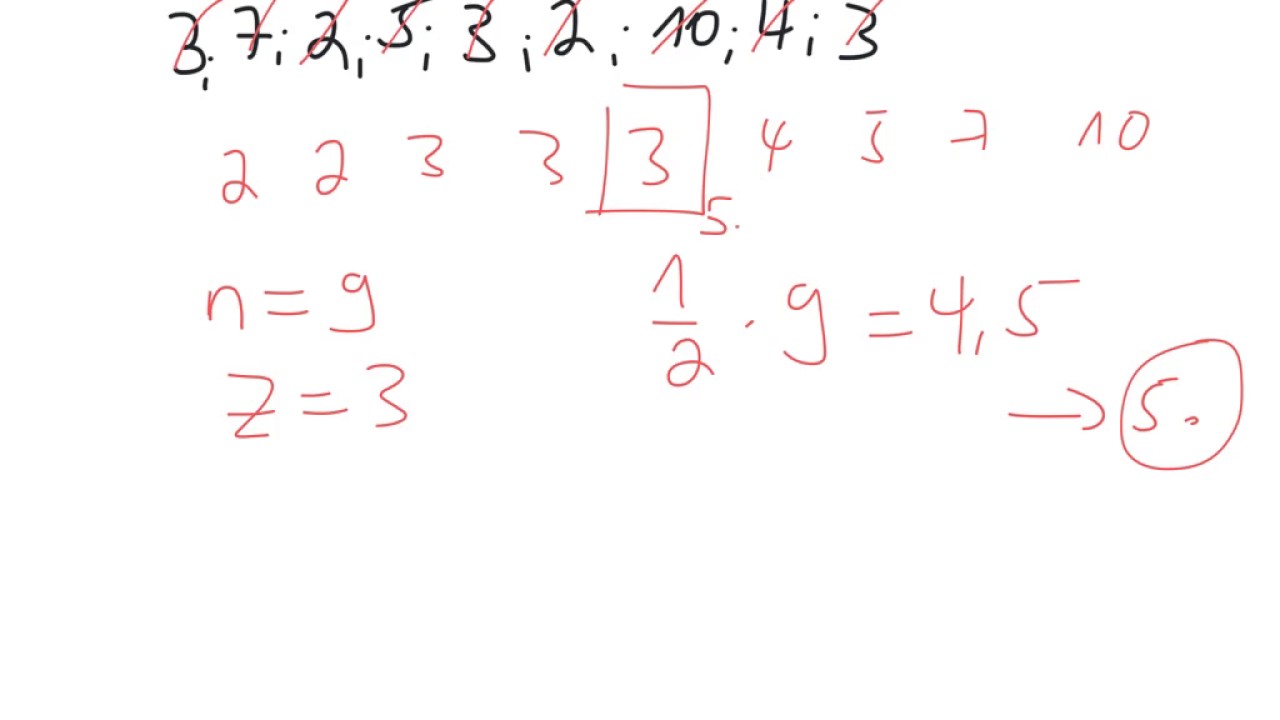 3; 7; 2; 5; 3; 2; 10; 4; 3
2 2 3 3 3 4 5 7 10
5.
n = 9
1/2 · 9 = 4,5
z = 3
→ 5.